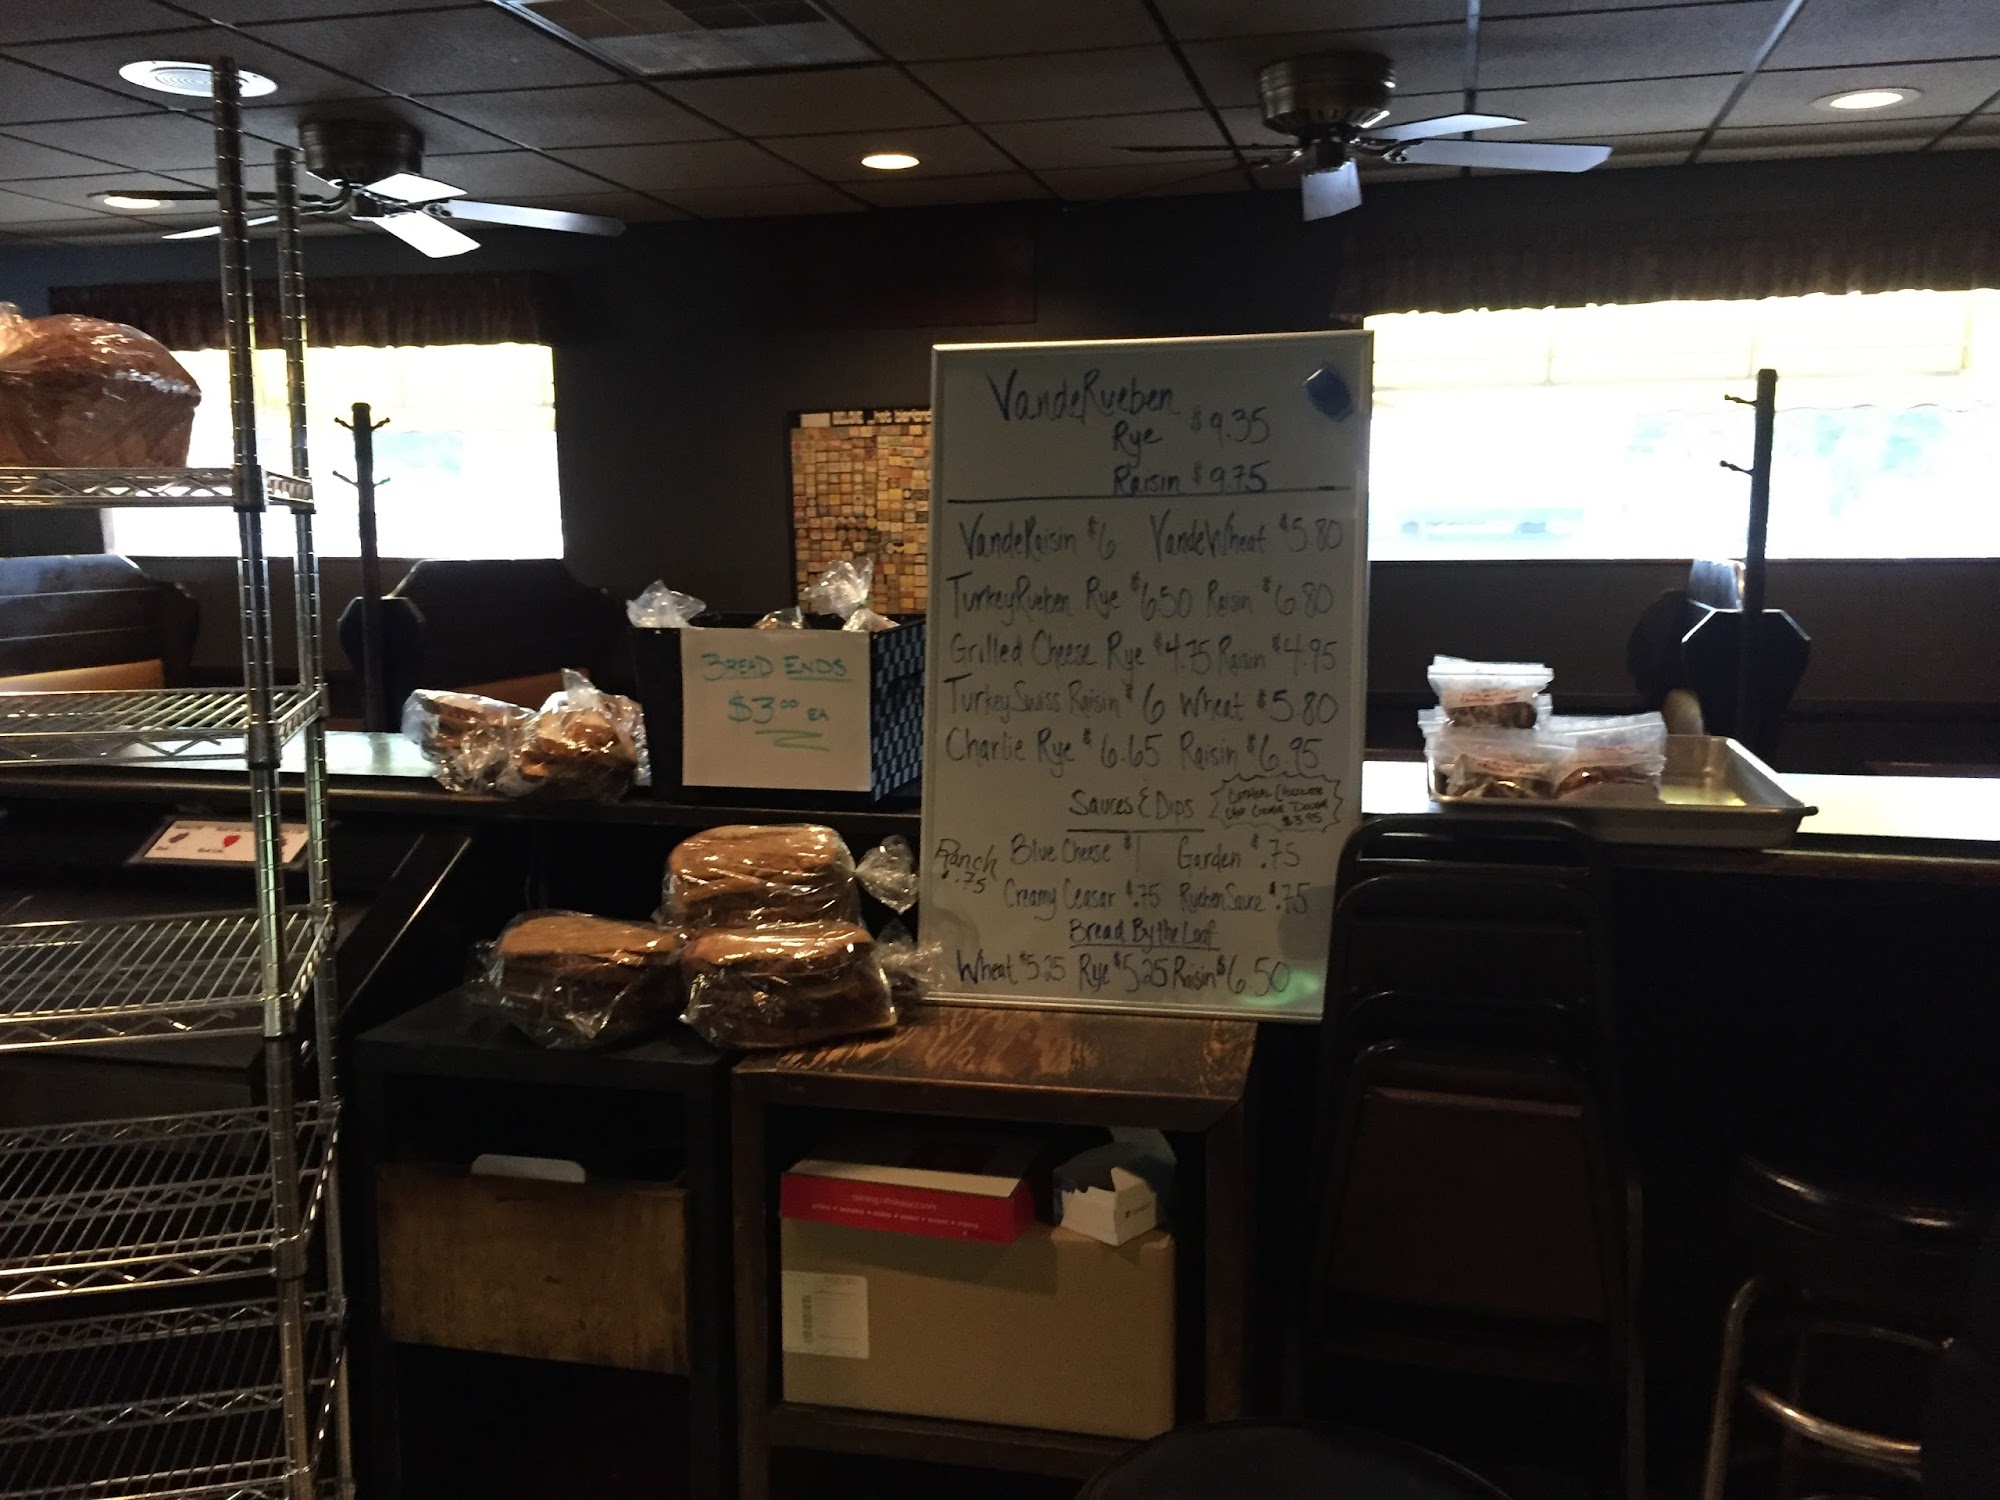 VandeRueben
Rye $9.35
Raisin $9.75
VandeRaisin $6 VandeWheat $5.80
TurkeyRueben Rye $6.50 Raisin $6.80
Grilled Cheese Rye $4.75 Raisin $4.95
TurkeySwiss Raisin $6 Wheat $5.80
Charlie Rye $6.65 Raisin $6.95
Sauces & Dips
Oatmeal Chocolate
Chip Cookie Dough
$3.95
Ranch
.75
Blue Cheese $1 Garden $.75
Creamy Ceasar $.75 RuebenSauce $.75
Bread By the Loaf
Wheat $5.25 Rye $5.25 Raisin $6.50
BREAD ENDS
$3.00 EA